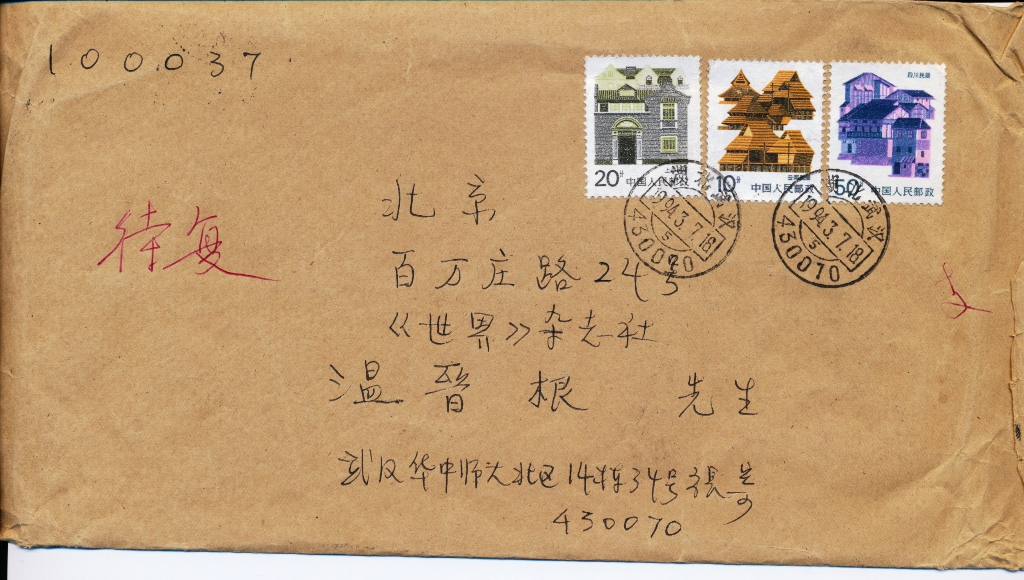 100037
四川民居
20分 中国人民邮政
云南民居
10分 中国人民邮政
50分 中国人民邮政
湖北武汉
1994.3.7.18
5
430070
湖北武汉
1994.3.7.18
5
430070
待复
北京
百万庄路24号
《世界》杂志社
温晋根 先生
武汉华中师大北区14栋34号张寄
430070